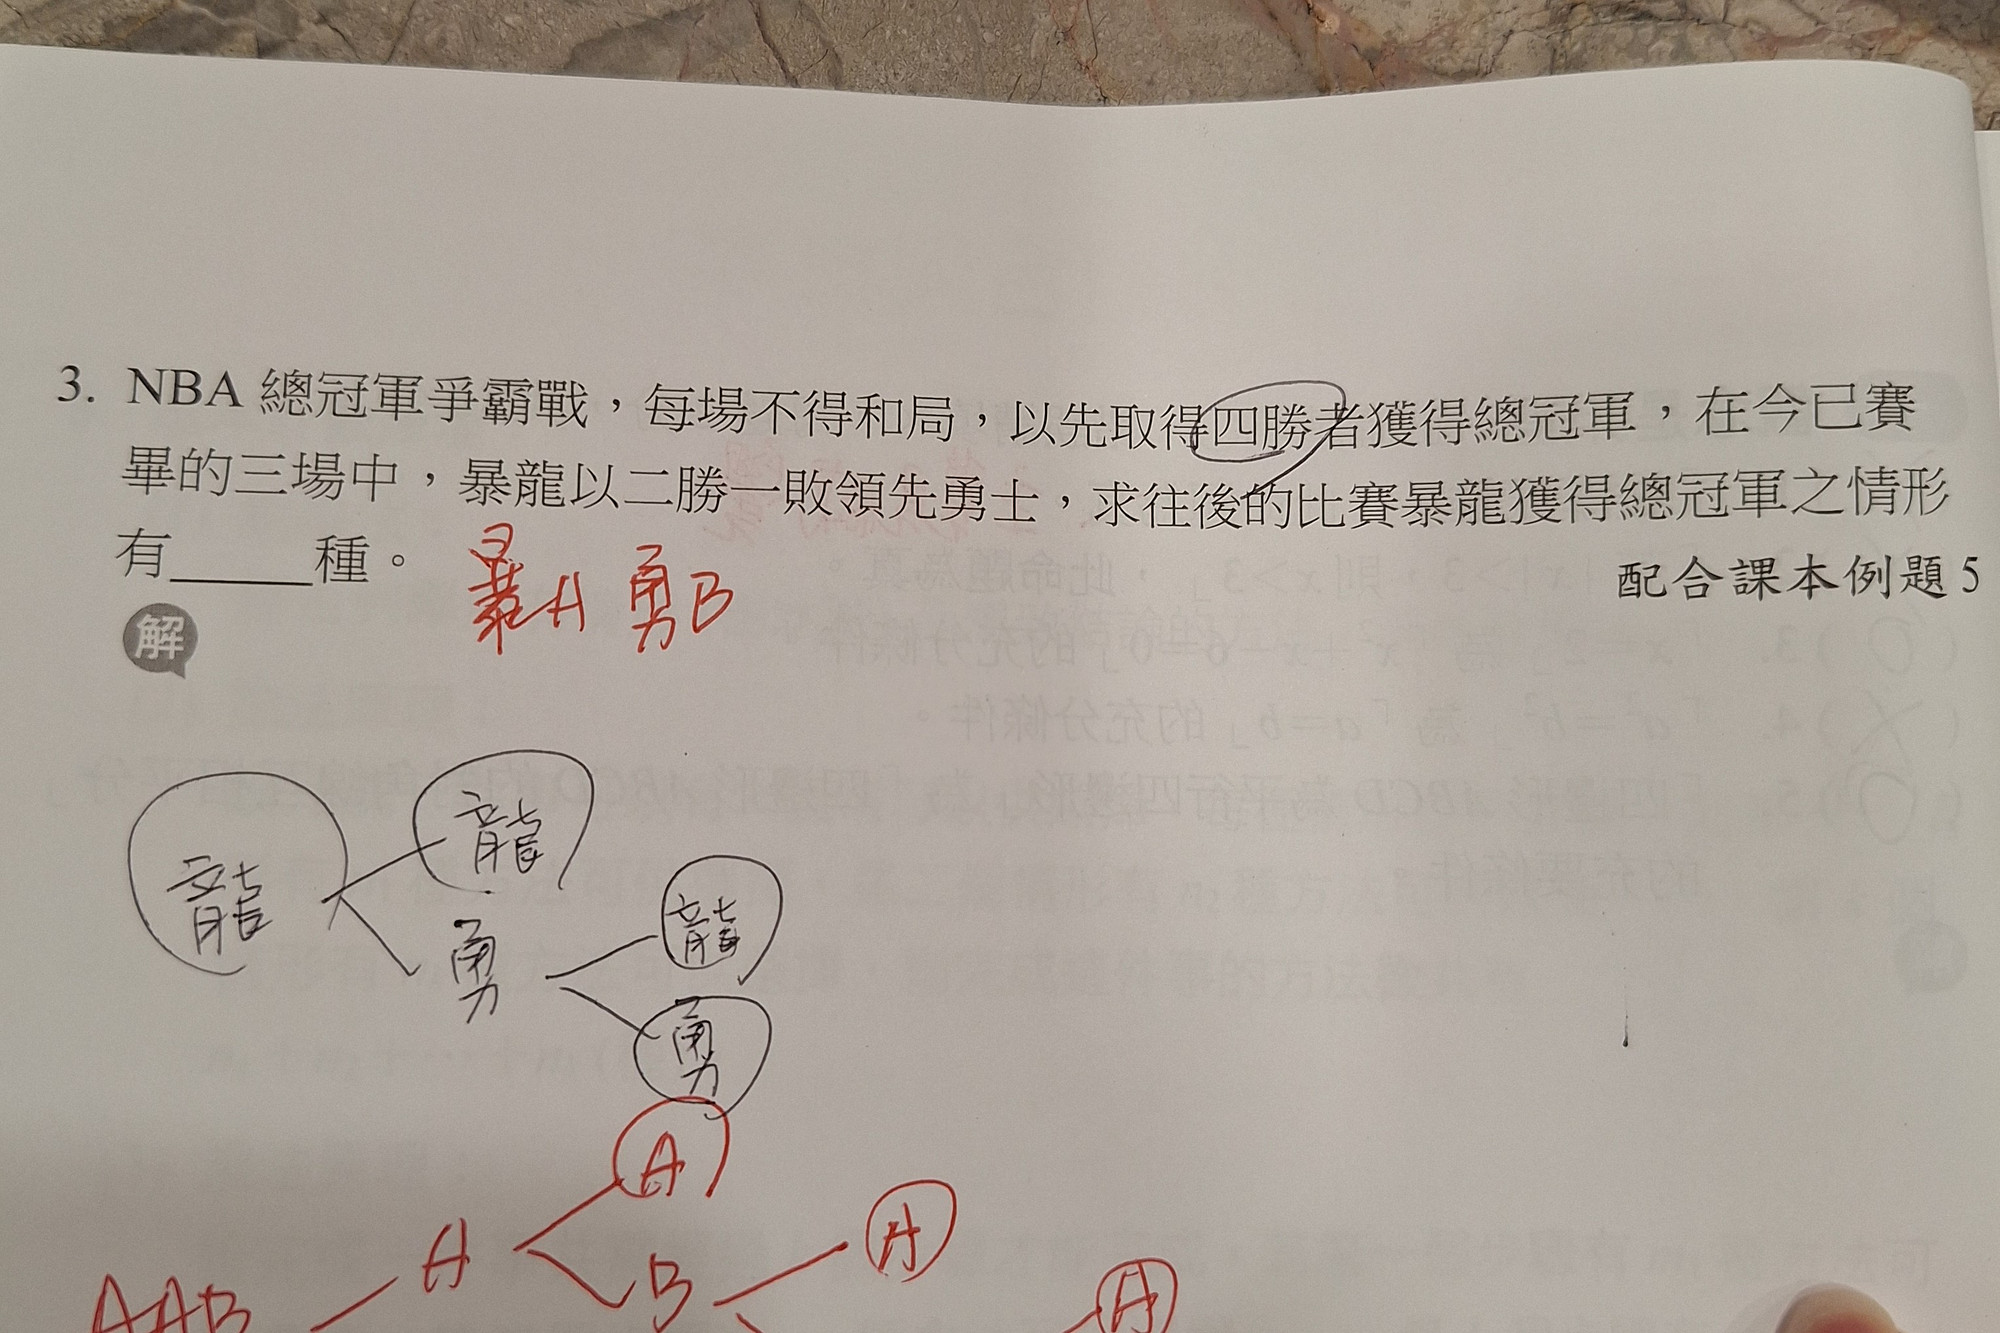 3. NBA 總冠軍爭霸戰，每場不得和局，以先取得四勝者獲得總冠軍，在今已賽
畢的三場中，暴龍以二勝一敗領先勇士，求往後的比賽暴龍獲得總冠軍之情形
有_____種。
暴A 勇B
配合課本例題5
解
龍
龍
勇
龍
勇
A
A
A
B
A
AAB